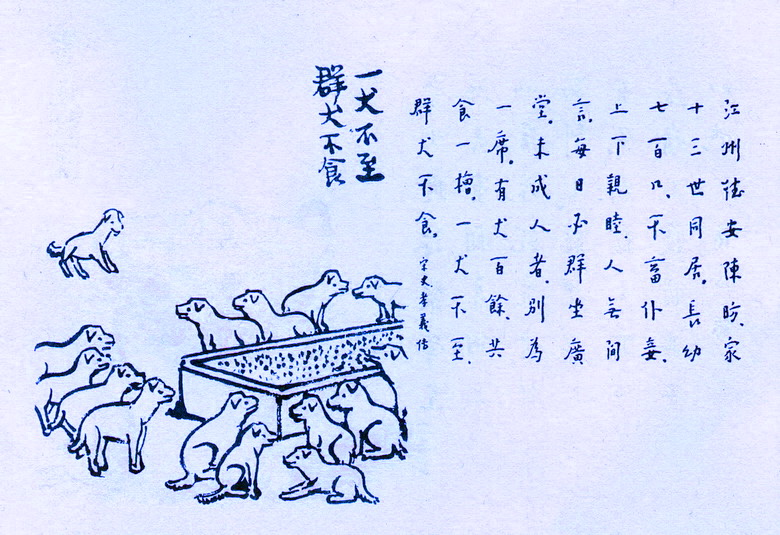 江州德安陳昉家
十三世同居。長幼
七百口、不畜仆妾、
上下親睦、人無間
言。每日必群坐廣
堂。未成人者、別為
一席。有犬百餘。共
食一槽。一犬不至、
群犬不食。宋史孝義傳
一犬不至
群犬不食